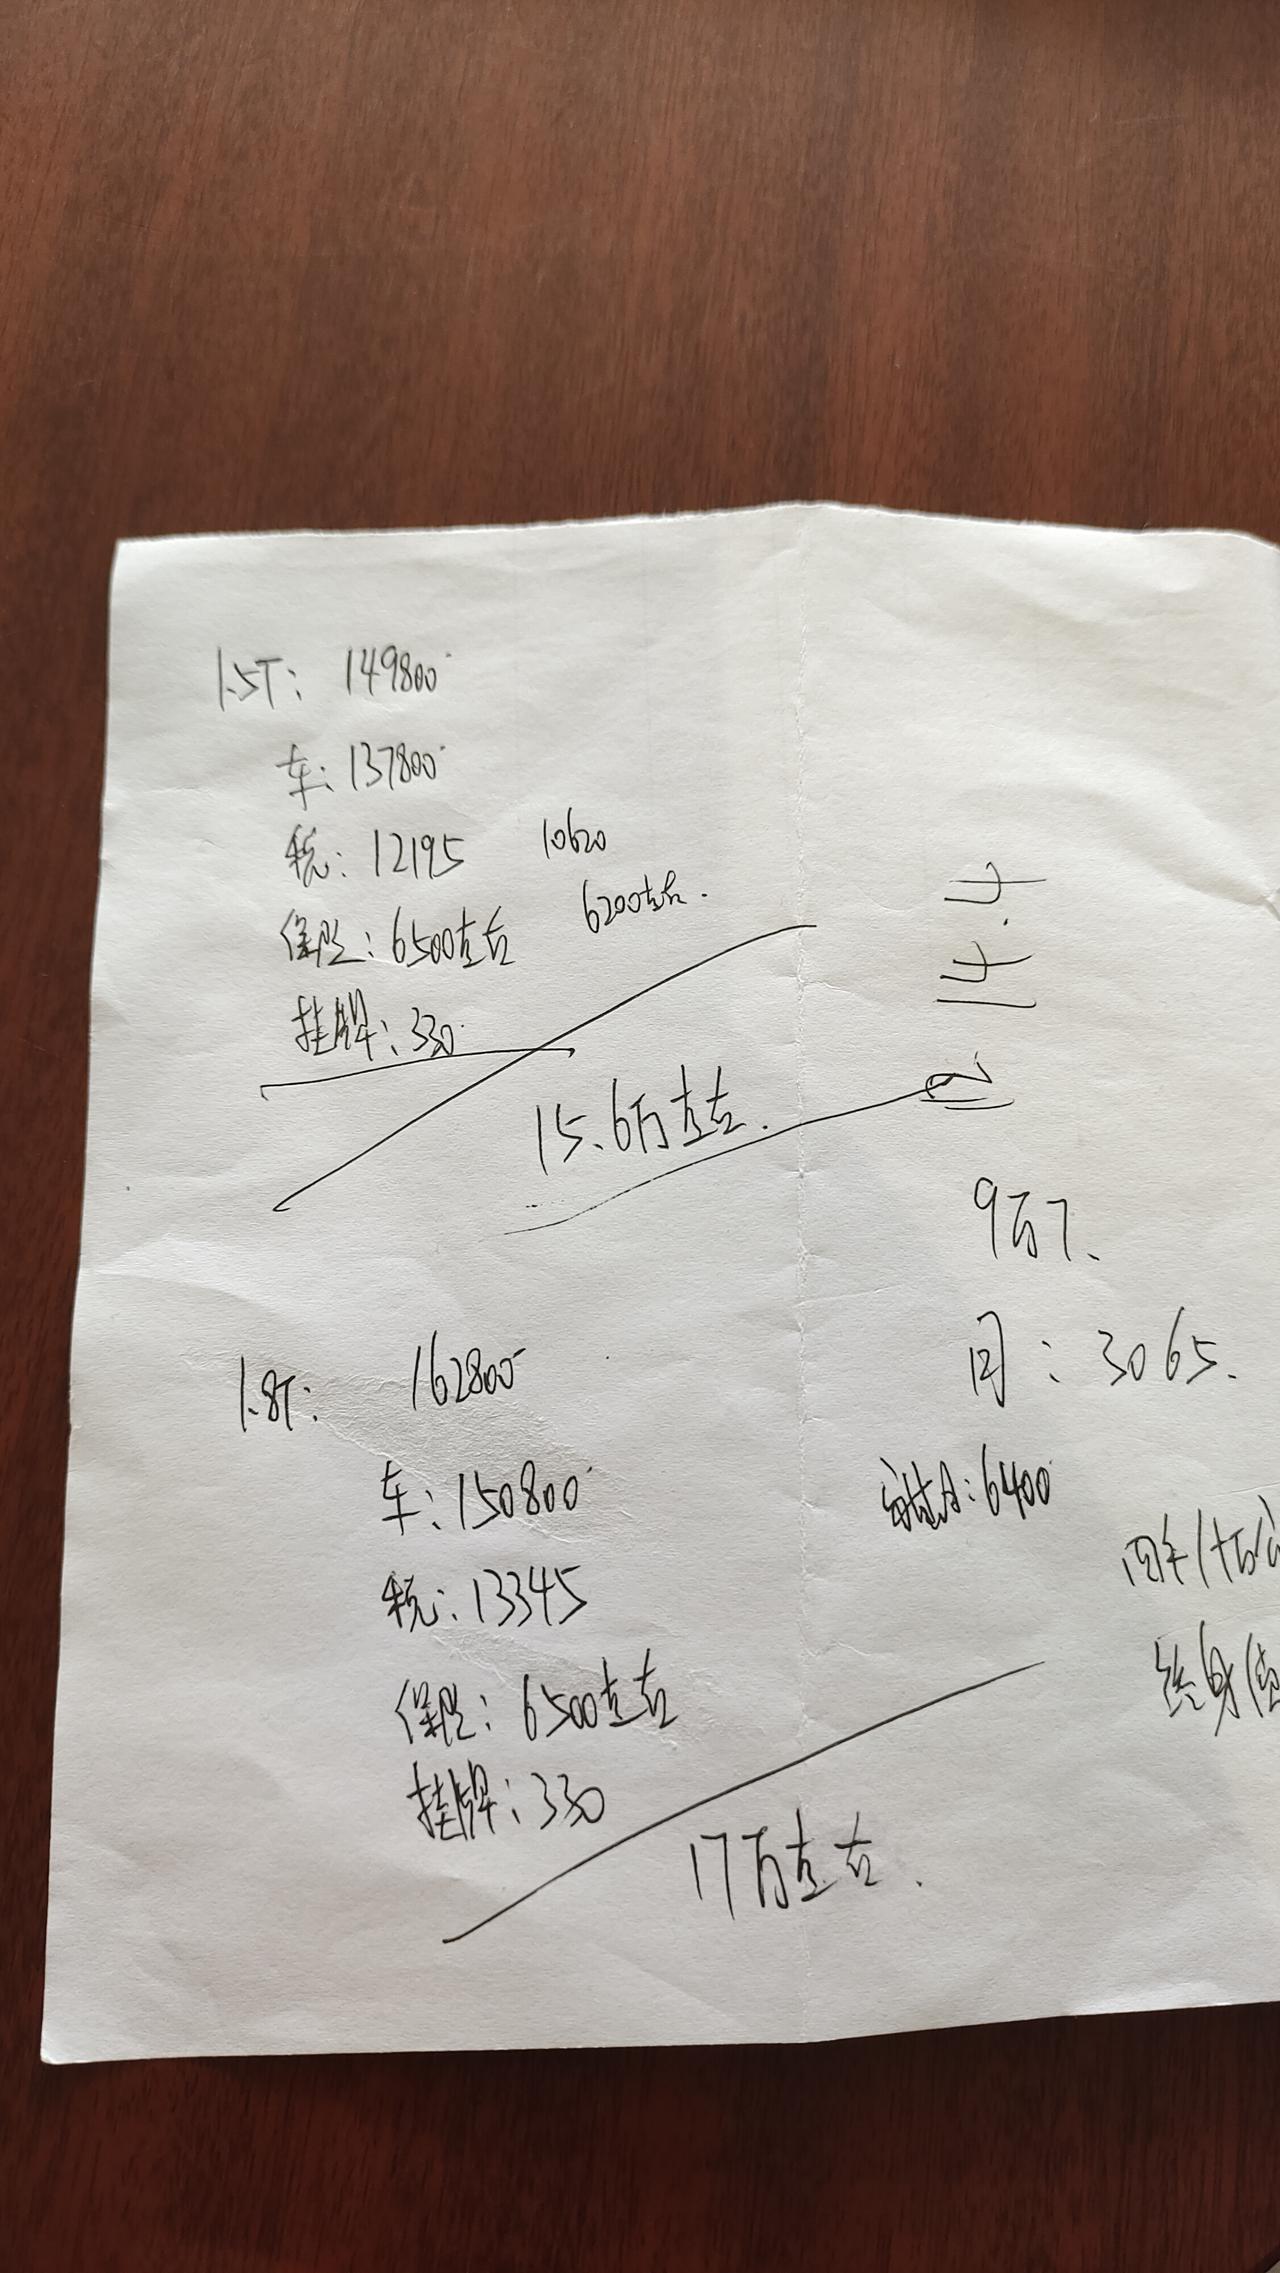 1.5T: 149800
车: 137800
税: 12195 10620
保险: 6500左右 6200左右.
挂牌: 330
15.6万左右.
14.4
9万7、
月: 3065.
6400
1.8T: 162800
车: 150800
税: 13345
保险: 6500左右
挂牌: 330
17万左右.
四年/十万公
终身